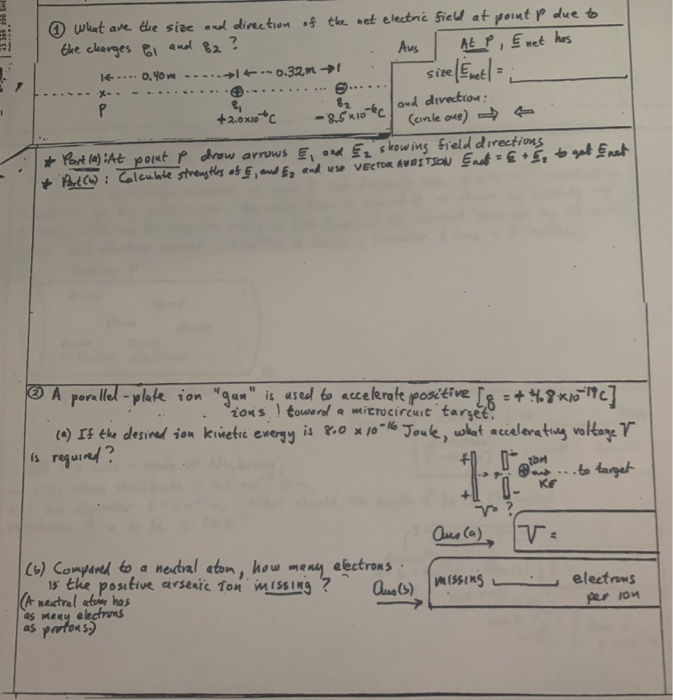 ① What are the size and direction of the net electric field at point P due to
the charges q1 and q2 ?
Ans
At P, E net has
size |Enet| =
and direction:
(circle one) ⇒ ⇐
|← ---- 0.40m ------→|←---0.32m→|
x
⊕
⊖
P
q1
q2
+2.0x10⁻⁶C
-8.5x10⁻⁶C
* Part (a): At point P draw arrows E1 and E2 showing field directions
* Part(b) : Calculate strengths of E1 and E2 and use VECTOR ADDITION Enet = E + E2 to get Enet
② A parallel-plate ion "gun" is used to accelerate positive [q = + 4.8x10⁻¹⁹C]
ions toward a microcircuit target.
(a) If the desired ion kinetic energy is 8.0 x 10⁻¹⁶ Joule, what accelerating voltage V
is required?
ion
⊕ → ... to target
KE
+
-
+
-
V= ?
Ans(a) →
V =
(b) Compared to a neutral atom, how many electrons
is the positive arsenic ion missing ?
(A neutral atom has
as many electrons
as protons.)
Ans(b) →
missing electrons
per ion